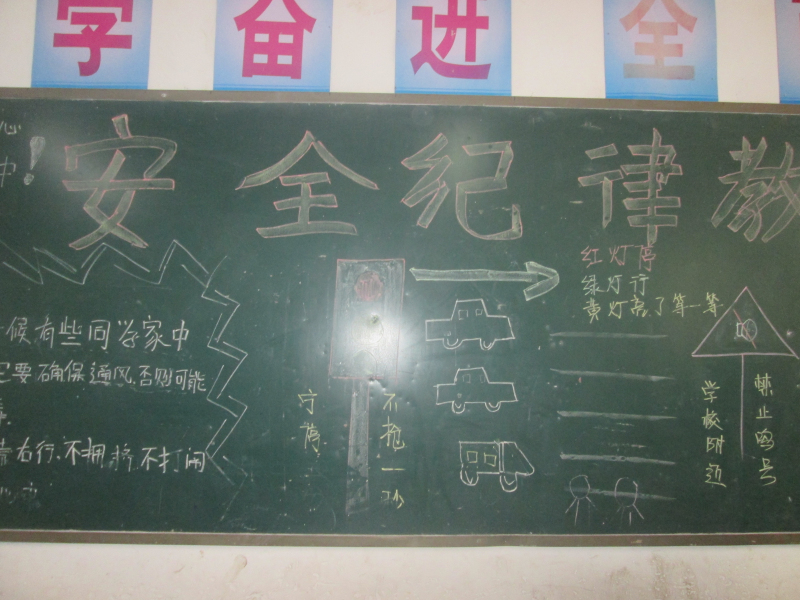 学 奋 进 全
安全纪律教
心
中!
红灯停
绿灯行
黄灯亮了等一等
候有些同学家中
要确保通风,否则可能
靠右行,不拥挤,不打闹
不抢一秒
学校附近
禁止鸣号